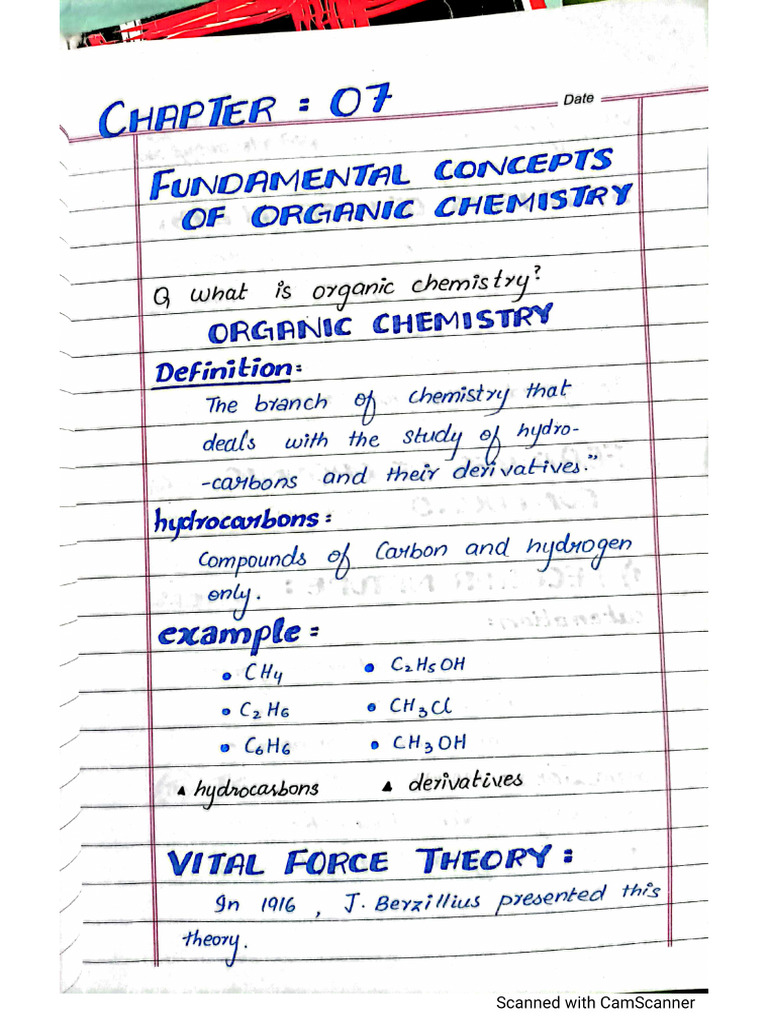 CHAPTER : 07
Date
FUNDAMENTAL CONCEPTS
OF ORGANIC CHEMISTRY
Q what is organic chemistry?
ORGANIC CHEMISTRY
Definition:
The branch of chemistry that
deals with the study of hydro-
-carbons and their derivatives."
hydrocarbons:
Compounds of Carbon and hydrogen
only.
example:
• CH4 • C2H5OH
• C2H6 • CH3Cl
• C6H6 • CH3OH
▲ hydrocarbons ▲ derivatives
VITAL FORCE THEORY:
In 1916, J. Berzillius presented this
theory.
Scanned with CamScanner